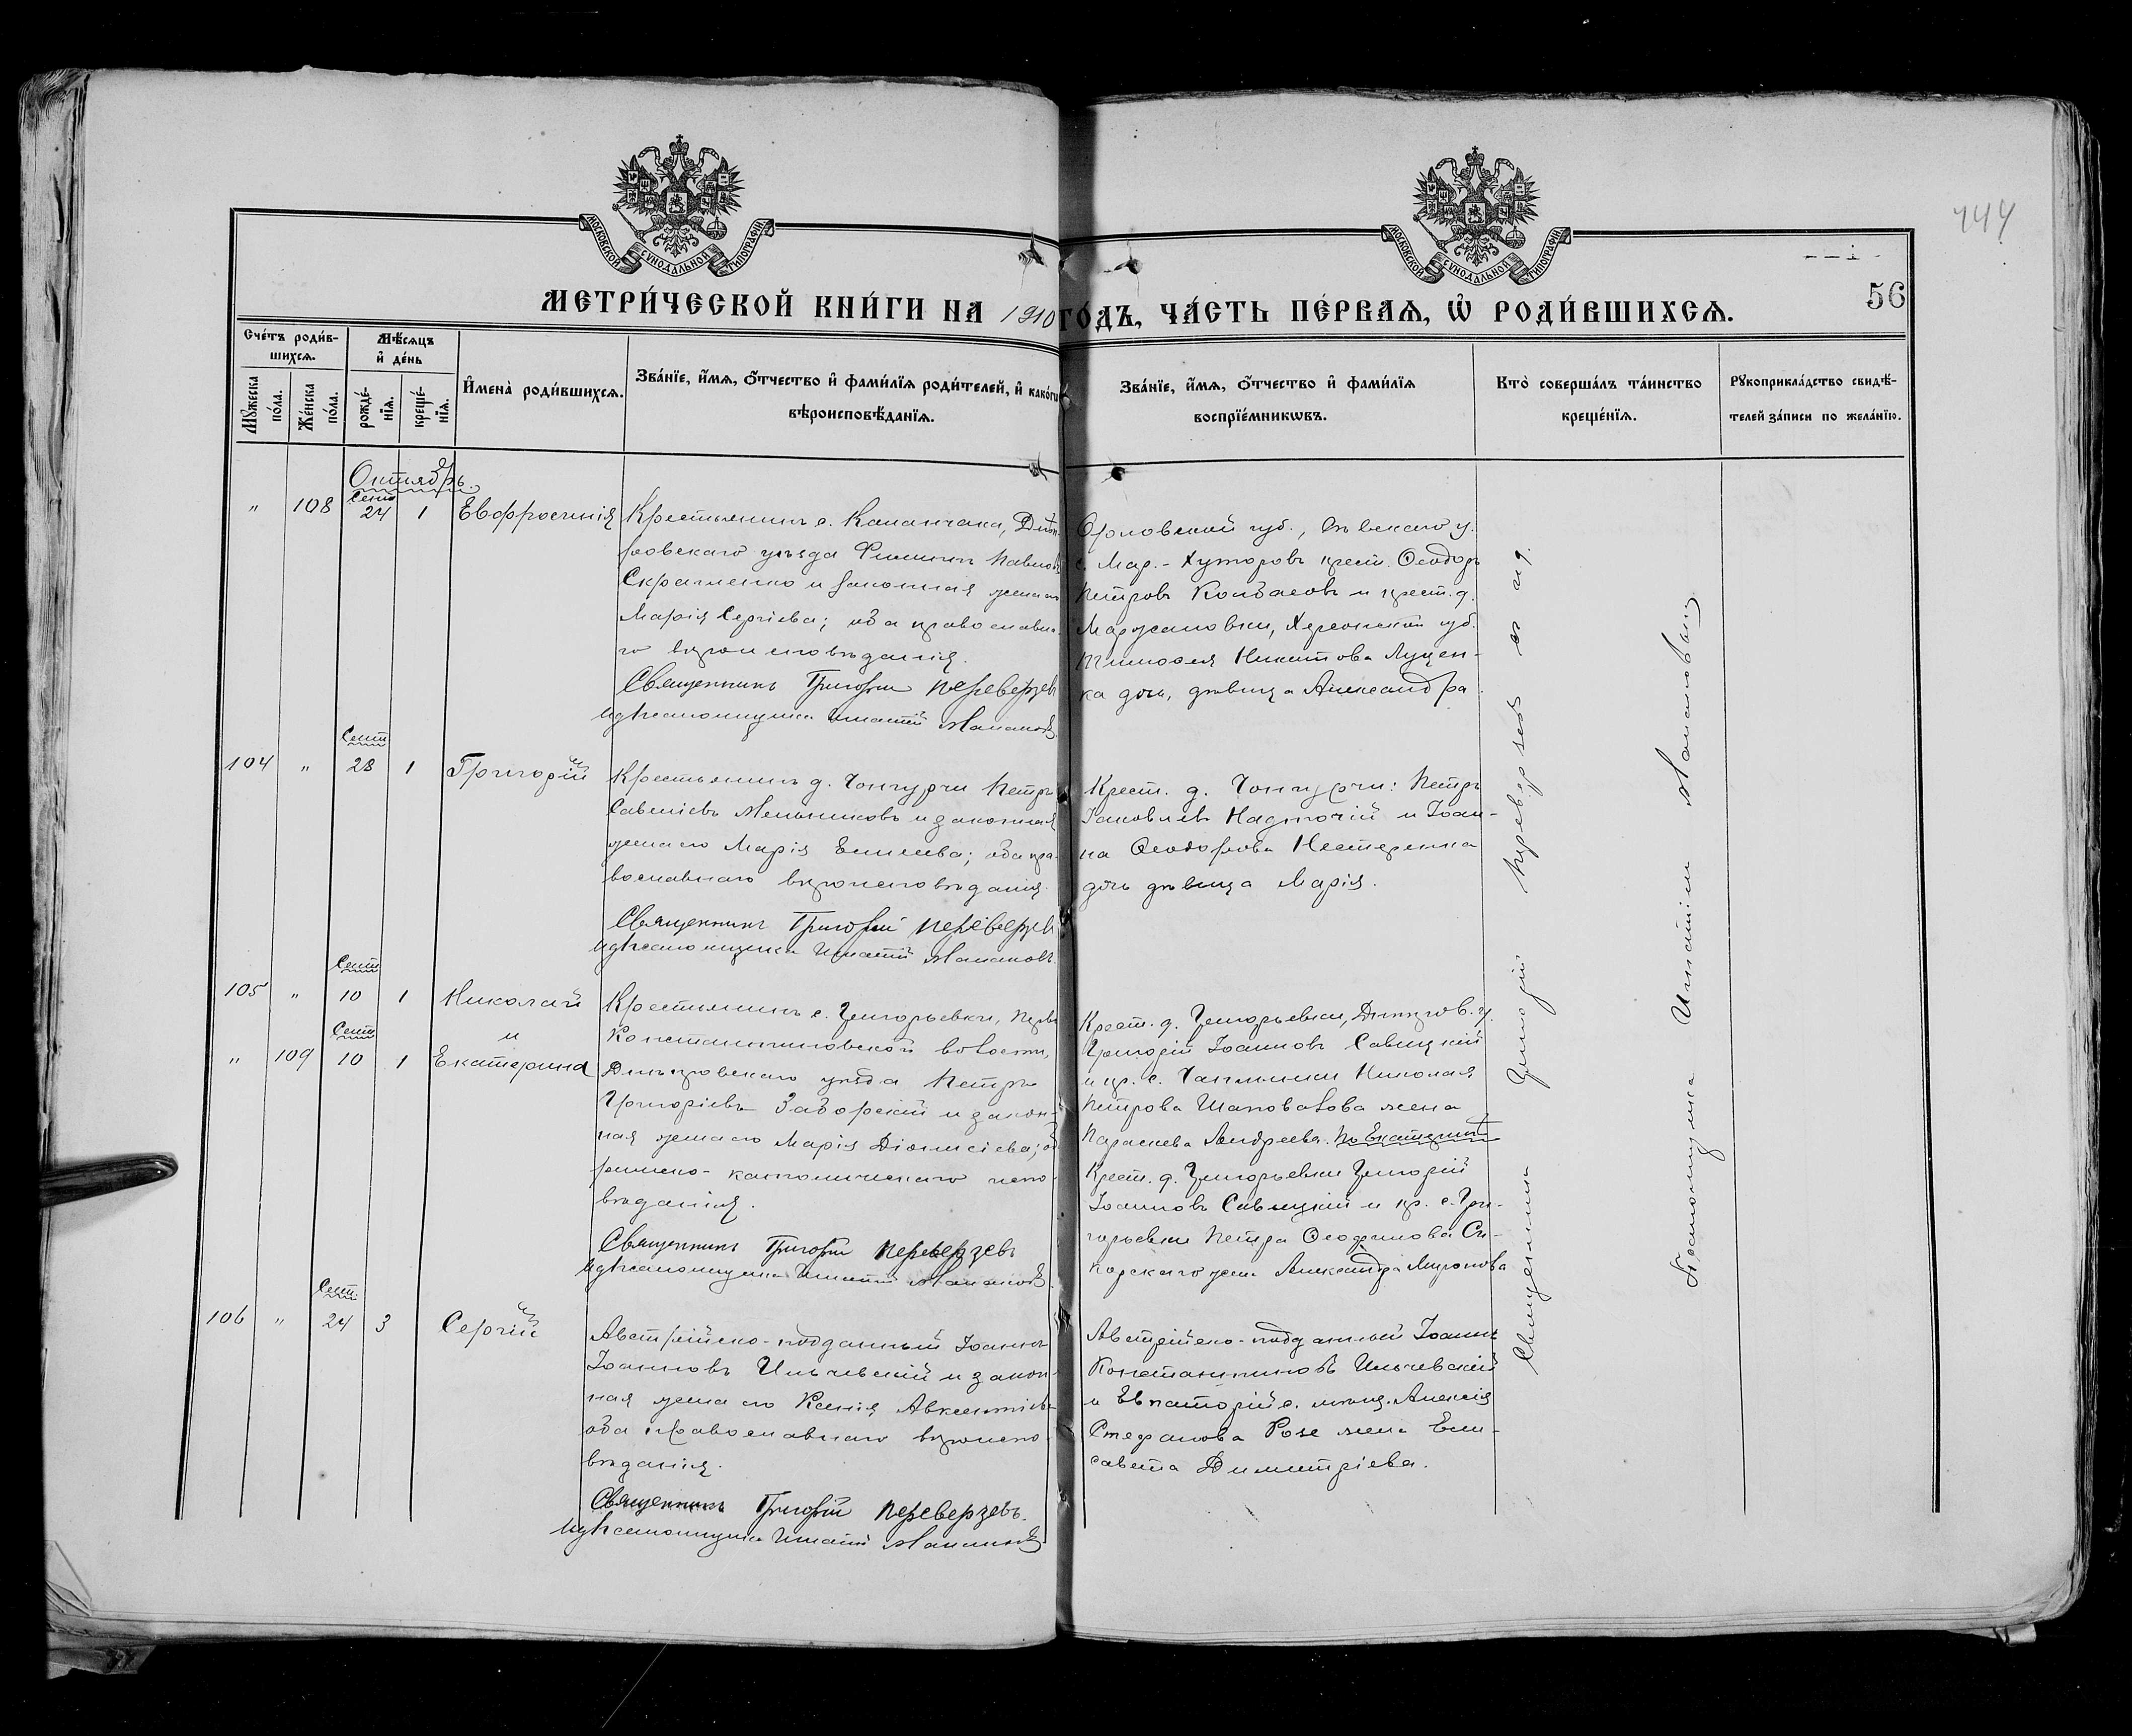 МОСКОВСКОЙ СѴНОДАЛЬНОЙ ТИПОГРАФІИ.
МОСКОВСКОЙ СѴНОДАЛЬНОЙ ТИПОГРАФІИ.
144
56
МЕТРИ́ЧЕСКОЙ КНИ́ГИ НА 1910 ГО́ДЪ, ЧА́СТЬ ПЕ́РВАѦ, Ѡ҆ РОДИ́ВШИХСѦ.
Сче́тъ роди́в-
шихсѧ.
Мꙋ́жеска
по́ла.
Же́нска
по́ла.
Мѣ́сѧцъ
и҆ де́нь
рожде́-
нїѧ.
креще́-
нїѧ.
И҆мена̀ роди́вшихсѧ.
Зва́нїе, и҆́мѧ, ѻ҆́тчество и҆ фами́лїѧ роди́телей, и҆ како́гѡ
вѣроисповѣ́данїѧ.
Зва́нїе, и҆́мѧ, ѻ҆́тчество и҆ фами́лїѧ
воспрїе́мникѡвъ.
Кто̀ соверша́лъ та́инство
креще́нїѧ.
Рꙋкоприкла́дство свидѣ́-
телей за́писи по жела́нїю.
Октябрь.
Сент
" 108 24 1 Евфросинія
Крестьянинъ с. Каланчака, Днѣп-
ровскаго уѣзда Филиппъ Павловъ
Скрашенко и законная жена его
Марія Сергіева; оба православна-
го вѣроисповѣданія.
Священникъ Григорій Переверзев
И. д. псаломщика Игнатій
Орловской губ., Сѣвскаго у.
с. Мар.-Хуторовъ крест. Ѳеодоръ
Петровъ Колбасовъ и крест. д.
Маржановки, Херсонской губ.
Тимоѳея Никитова Луцен-
ка дочь, дѣвица Александра.
Сент
104 " 28 1 Григорій
Крестьянинъ д. Чонгурчи Петръ
Савеліевъ Мельниковъ и законная
жена его Марія Емиліева; оба пра-
вославнаго вѣроисповѣданія.
Священникъ Григорій Переверзев
И. д. псаломщика Игнатій
Крест. д. Чонгурчи: Петръ
Іаковлевъ Надточій и Іоан-
на Ѳеодорова Нестеренка
дочь дѣвица Марія.
Сент
105 " 10 1 Николай
и
Сент
" 109 10 1 Екатерина
Крестьянинъ с. Григорьевки, Перво
Константиновской волости,
Днѣпровскаго уѣзда Петръ
Григоріевъ Заборскій и закон-
ная жена его Марія Діонисіева; оба
римско-католическаго испо-
вѣданія.
Священникъ Григорій Переверзевъ
И. д. псаломщика Игнатій
Крест. д. Григорьевки, Днѣпров. у.
Григорій Іоанновъ Савицкій
и кр. с. Чаплинки Николая
Петрова Шаповалова жена
Параскева Андреева. По Екатеринѣ
Крест. д. Григорьевки Григорій
Іоанновъ Савицкій и кр. с. Гри-
горьевки Петра Ѳеофанова Си-
корскаго жена Александра Миронова
Сент.
106 " 24 3 Сергій
Австрійско-подданный Іоаннъ
Іоанновъ Ильчевскій и закон-
ная жена его Ксенія Авксентіева
оба православнаго вѣроиспо-
вѣданія.
Священникъ Григорій Переверзевъ.
И. д. псаломщика Игнатій
Австрійско-подданный Іоаннъ
Константиновъ Ильчевскій
и Евпаторійс. мѣщ. Алексія
Стефанова Розе жена Ели-
савета Димитріева.
Священникъ Григорій Переверзевъ
Псаломщика Игнатій